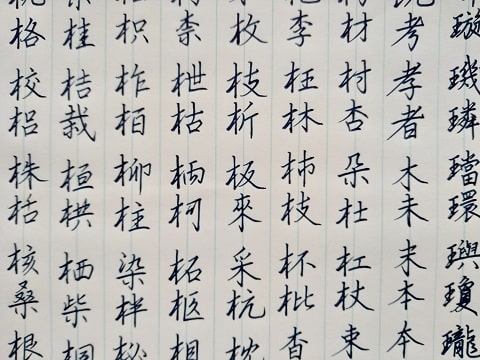 璇璣璘璫環璵瓊瓏
考孝者木未末本本
材村杏朵杜杠杖束
李枉林枝杯枇杳
枚枝析板來采杭枕
柰枻枯柄柯柘相
枳柞柏柳柱染柈柲
桂桔栽桓栱栖柴桐
格校株栝核桑根